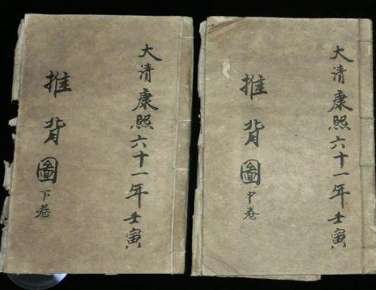 大清康熙六十一年壬寅
推背圖
中卷
大清康熙六十一年壬寅
推背圖
下卷